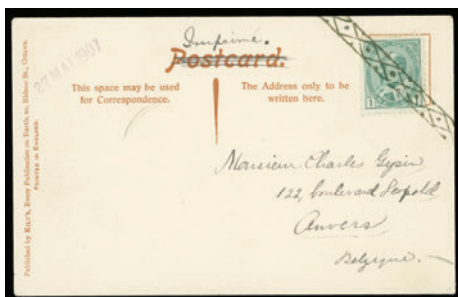 Imprimé.
Postcard.
This space may be used
for Correspondence.
The Address only to be
written here.
27 MAI 1907
1
1
Monsieur Charles Gysin
122, boulevard Léopold
Anvers
Belgique.
Published by KELY'S, Every Publication on Earth, 20, Rideau St., Ottawa.
PRINTED IN ENGLAND.